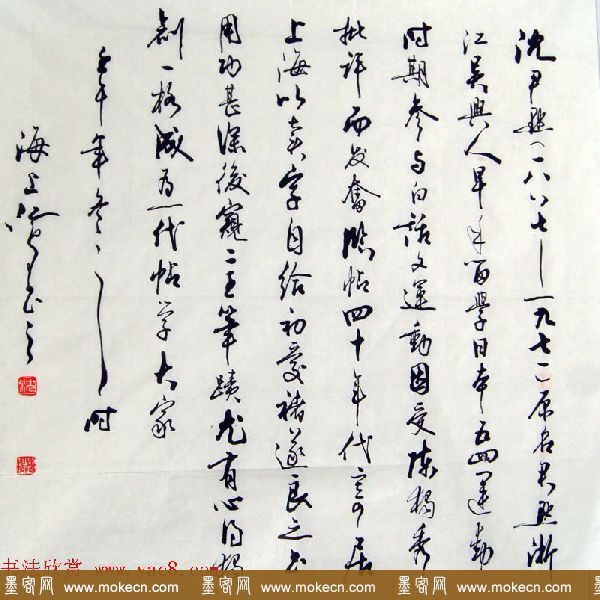 沈尹默(一八八七—一九七一)原名君默浙
江吴興人早年留學日本五四運動
时期参与白话文運動因受陈独秀
批评而发奮臨帖四十年代寓居
上海以卖字自给初爱褚遂良之书
用功甚深後窥二王筆蹟尤有心得独
創一格成为一代帖学大家
壬午年冬
时
海上
书法欣赏 www.yac8.com
墨客网 www.mokecn.com 墨客网 www.mokecn.com 墨客网 www.mokecn.com